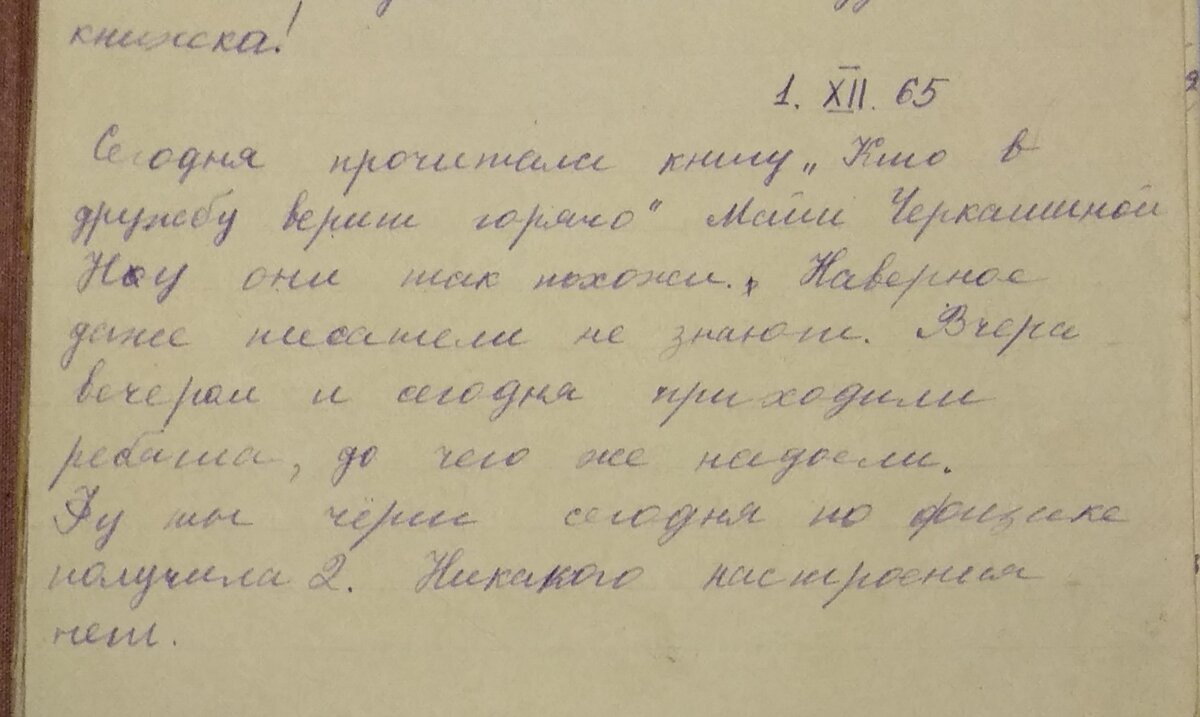 книжка!
1. XII. 65
Сегодня прочитала книгу „Кто в
дружбу верит горячо" Майи Черкашиной
Ноу они так похожи. Наверное
даже писатели не знают. Вчера
вечером и сегодня приходили
ребята, до чего же надоели.
Фу ты черт сегодня по физике
получила 2. Никакого настроения
нет.